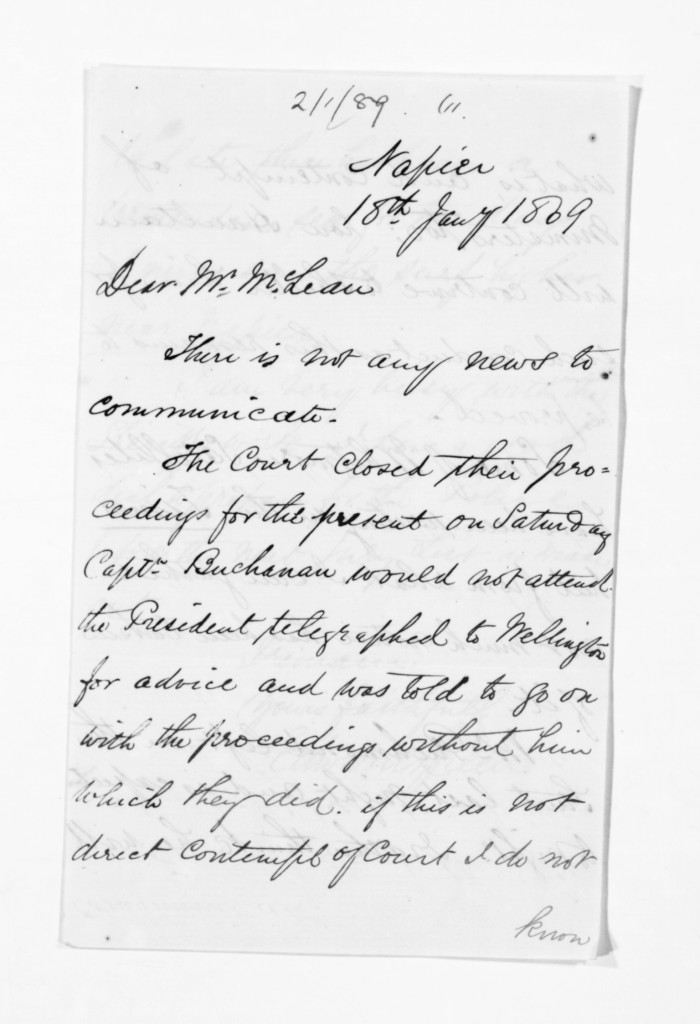 2/1/89. (11.
Napier
18th Jany 1869
Dear Mr. McLean
There is not any news to
communicate.
The Court closed their pro=
ceedings for the present on Saturday
Captn. Buchanan would not attend.
the President telegraphed to Wellington
for advice and was told to go on
with the proceedings without him
which they did. if this is not
direct contempt of Court I do not
know